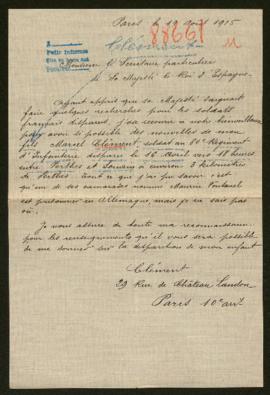 Paris le 19 Août 1915
88661
Clément
11
Petite Infirme
Monsieur le Secrétaire particulier
de Sa Majesté le Roi d'Espagne
Ayant appris que sa Majesté daignait
faire quelques recherches pour les soldats
français disparus, j'ose recourir à votre bienveillance
pour avoir si possible des nouvelles de mon
fils Marcel Clément, soldat au 80e Régiment
d'Infanterie disparu le 16 Avril à 18 heures
entre Perthes et à 3 kilomètres
de Perthes. Tout ce que j'ai pu savoir c'est
qu'un de ses camarades nommé Maurice
est prisonnier en Allemagne, mais je ne sais pas
où.
Je vous assure de toute ma reconnaissance
pour les renseignements qu'il vous sera possible
de me donner sur la disparition de mon enfant
Clément
29 Rue de Château Landon
Paris 10e arrt